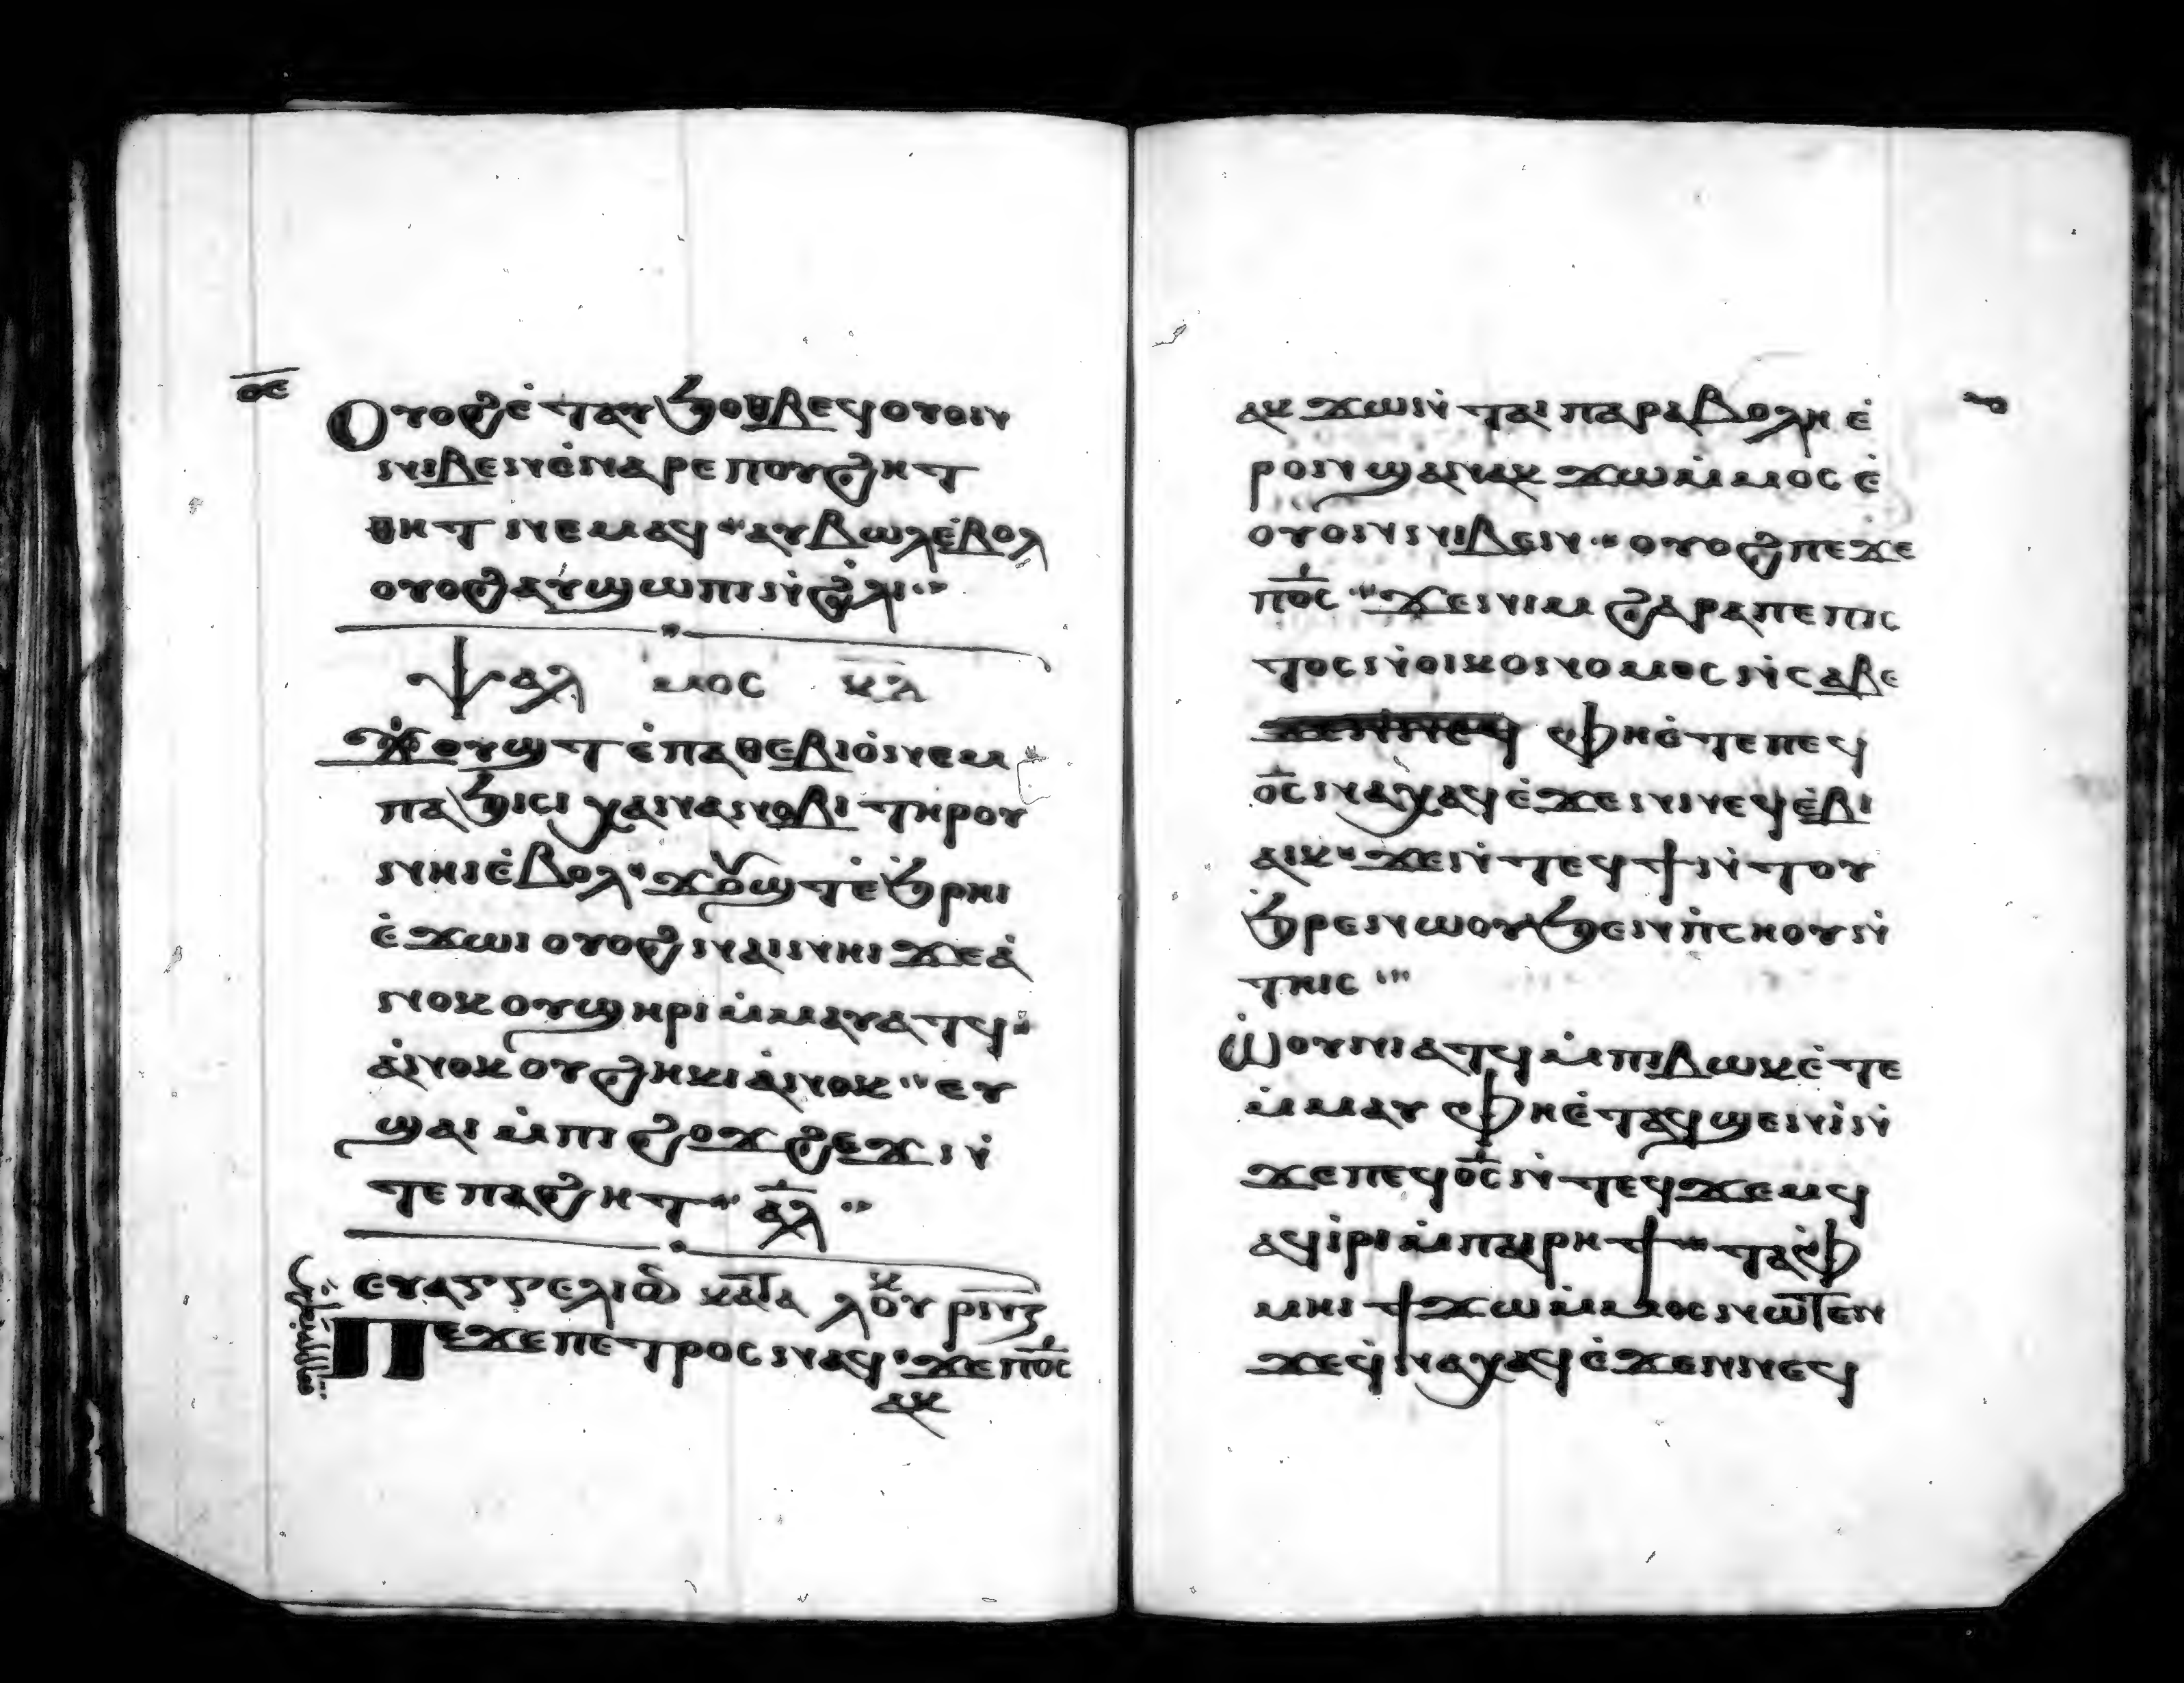 ⲟⲉ
Ⲟⲩⲟϩ ⲉ̇ⲧⲁⲩϧⲟⲑⲃⲉϥ ⲟⲩⲟⲛ
ⲛⲓⲃⲉⲛ ⲉ̇ⲛⲁⲣⲉ ⲡⲟⲩϩⲏⲧ
ⲑⲏⲧ ⲛⲉⲙⲁϥ ⲁⲩⲃⲱⲗ ⲉ̇ⲃⲟⲗ
ⲟⲩⲟϩ ⲁⲩϣⲱⲡⲓ ⲛ̇ϩ̇ⲗⲓ
ⲯⲁⲗ ⲙⲟⲥ ⲕⲇ
Ϫⲟⲩϣⲧ ⲉ̇ⲡⲁⲑⲉⲃⲓⲟ̇ ⲛⲉⲙ
ⲡⲁϧⲓⲥⲓ ⲭⲁ ⲛⲁⲛⲟⲃⲓ ⲧⲏⲣⲟⲩ
ⲛⲏⲓ ⲉ̇ⲃⲟⲗ ϫⲟⲩϣⲧ ⲉ̇ϧ̇ⲣⲏⲓ
ⲉ̇ϫⲱⲓ ⲟⲩⲟϩ ⲛⲁⲓ ⲛⲏⲓ ϫⲉ ⲁ̇
ⲛⲟⲕ ⲟⲩϣⲏⲣⲓ ⲙ̇ⲙⲁⲩⲁⲧϥ
ⲁ̇ⲛⲟⲕ ⲟⲩϩⲏⲕⲓ ⲁ̇ⲛⲟⲕ ⲉⲩ
ϣⲁⲓ ⲙ̇ⲡⲓϩⲟϫϩⲉϫ ⲛ̇
ⲧⲉ ⲡⲁϩⲏⲧ ⲁ̅ⲗ̅
ⲉⲩⲁⲅⲅⲉⲗⲓⲟⲛ ⲕⲁⲧⲁ ⲗⲟⲩⲕ ⲣⲛⲍ
Ⲡⲉϫⲉ ⲡⲉⲧⲣⲟⲥ ⲛⲁϥ ϫⲉ ⲡ⳪
ⲁⲕ
ⲁⲕϫⲱ ⲛ̇ⲧⲁⲓⲡⲁⲣⲁⲃⲟⲗⲏ ⲉ̇
ⲣⲟⲛ ϣⲁⲛ ⲁⲕϫⲱ ⲙ̇ⲙⲟⲥ ⲉ̇
ⲟⲩⲟⲛ ⲛⲓⲃⲉⲛ ⲟⲩⲟϩ ⲡⲉϫⲉ
ⲡ⳪ ϫⲉ ⲛⲓⲙ ϩⲁⲣⲁ ⲡⲉ ⲡⲓⲥ
ⲧⲟⲥ ⲛ̇ⲟⲓⲕⲟⲛⲟⲙⲟⲥ ⲛ̇ⲥⲁⲃⲉ
ⲫⲏ ⲉ̇ⲧⲉ ⲡⲉϥ
⳪ ⲛⲁⲭⲁϥ ⲉ̇ϫⲉⲛ ⲛⲉϥⲉ̇ⲃⲓ
ⲁⲓⲕ ϫⲉ ⲛ̇ⲧⲉϥϯ ⲛ̇ⲧⲟⲩ
ϧⲣⲉ ⲛⲱⲟⲩ ϧⲉⲛ ⲡ̇ⲥⲏⲟⲩ ⲛ̇
ⲧⲏⲓⲥ
Ⲱ̇ⲟⲩⲛⲓⲁⲧϥ ⲙ̇ⲡⲓⲃⲱⲕ ⲉ̇ⲧⲉ
ⲙ̇ⲙⲁⲩ ⲫⲏ ⲉ̇ⲧⲁϥϣⲉⲛⲓ̇ ⲛ̇
ϫⲉ ⲡⲉϥ⳪ ⲛ̇ⲧⲉϥϫⲉⲙϥ
ⲁϥⲓ̇ⲣⲓ ⲙ̇ⲡⲁⲓⲣⲏϯ ⲧⲁⲫ
ⲙⲏⲓ ϯϫⲱ ⲙ̇ⲙⲟⲥ ⲛⲱⲧⲉⲛ
ϫⲉ ϥ̇ⲛⲁⲭⲁϥ ⲉ̇ϫⲉⲛ ⲛⲉϥ